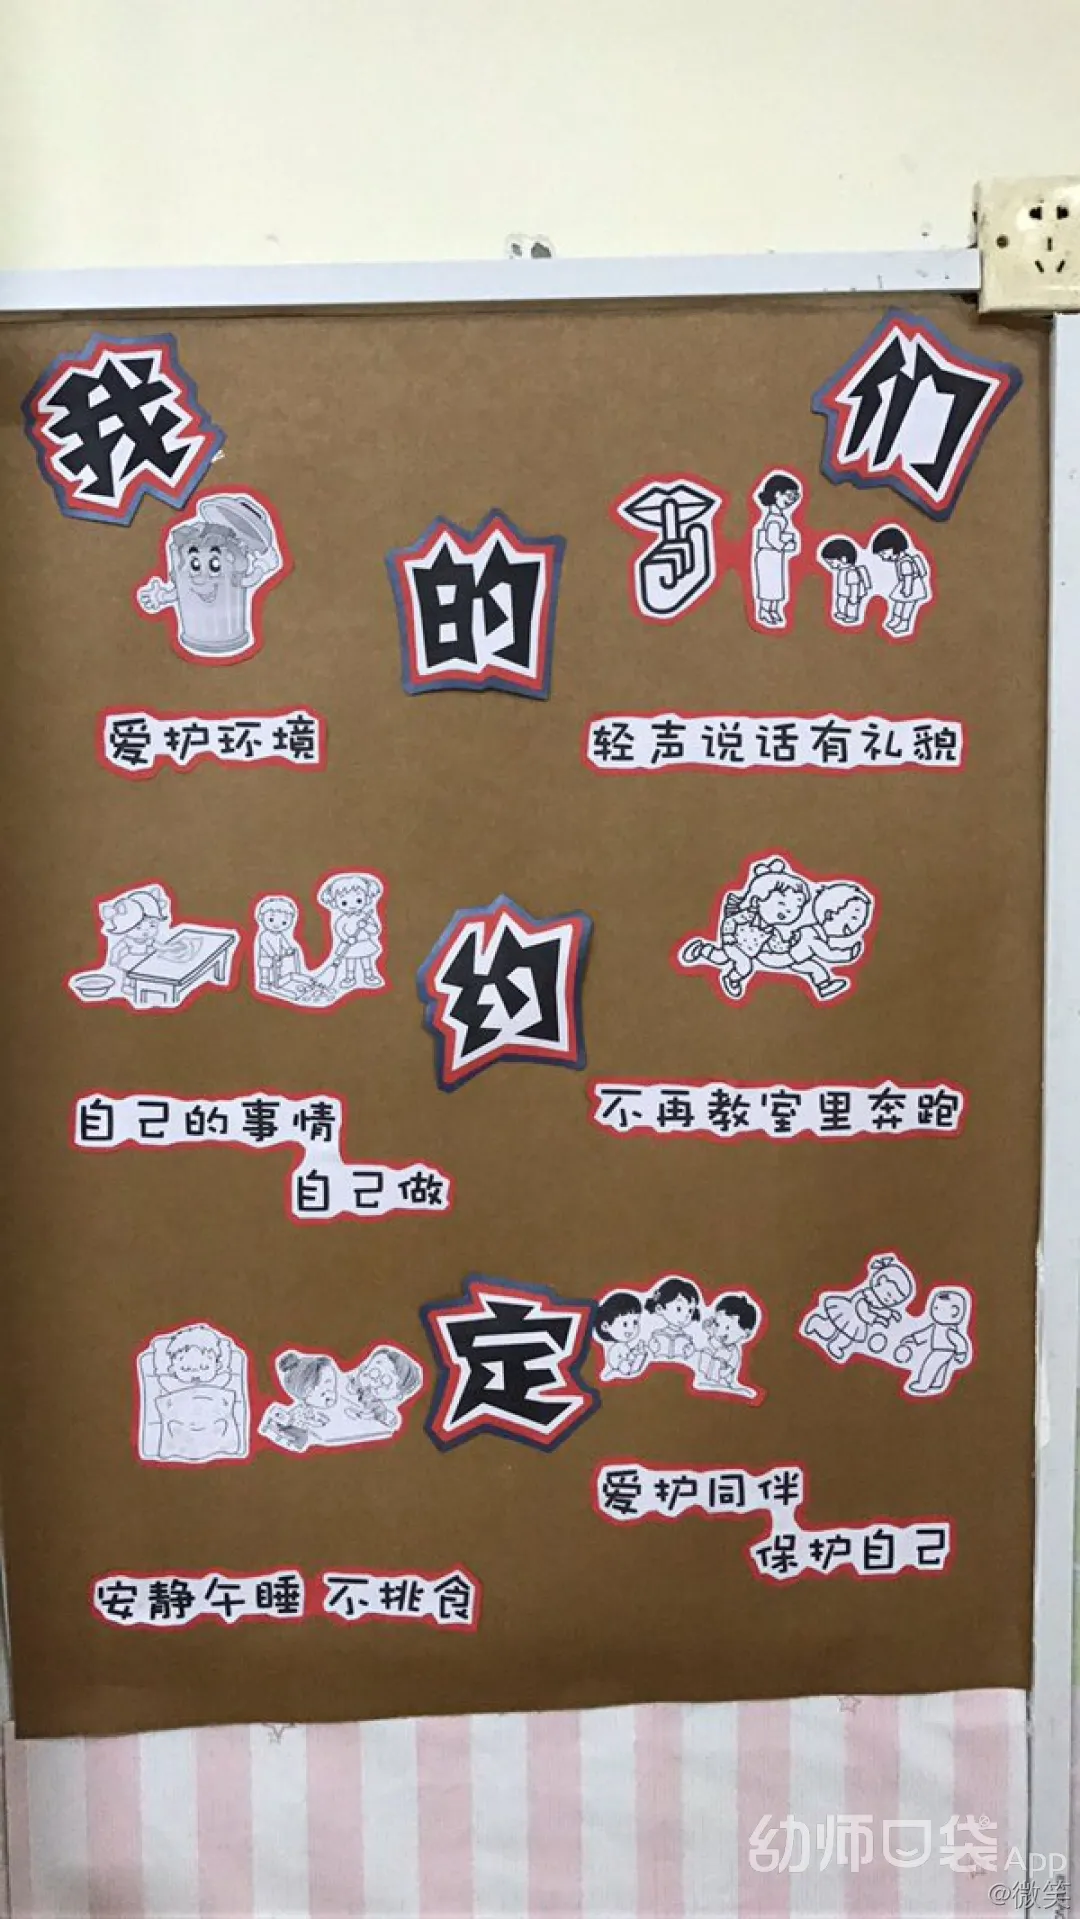 我们
的
爱护环境
轻声说话有礼貌
约
自己的事情
自己做
不再教室里奔跑
定
爱护同伴
保护自己
安静午睡 不挑食
幼师口袋App
@微笑